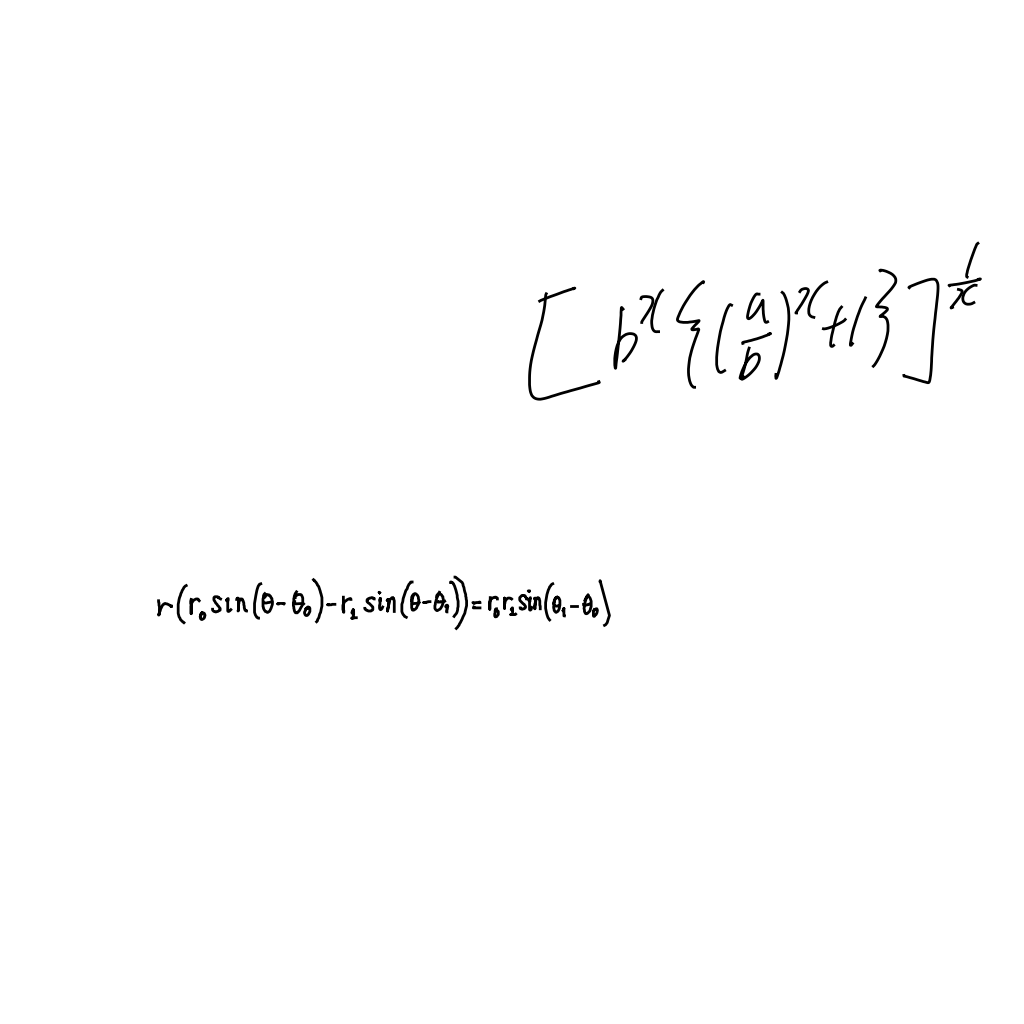 \left[ b^x \left\{ \left( \frac{a}{b} \right)^x + 1 \right\} \right]^{\frac{1}{x}}
r(r_0 \sin(\theta - \theta_0) - r_1 \sin(\theta - \theta_1)) = r_0 r_1 \sin(\theta_1 - \theta_0)